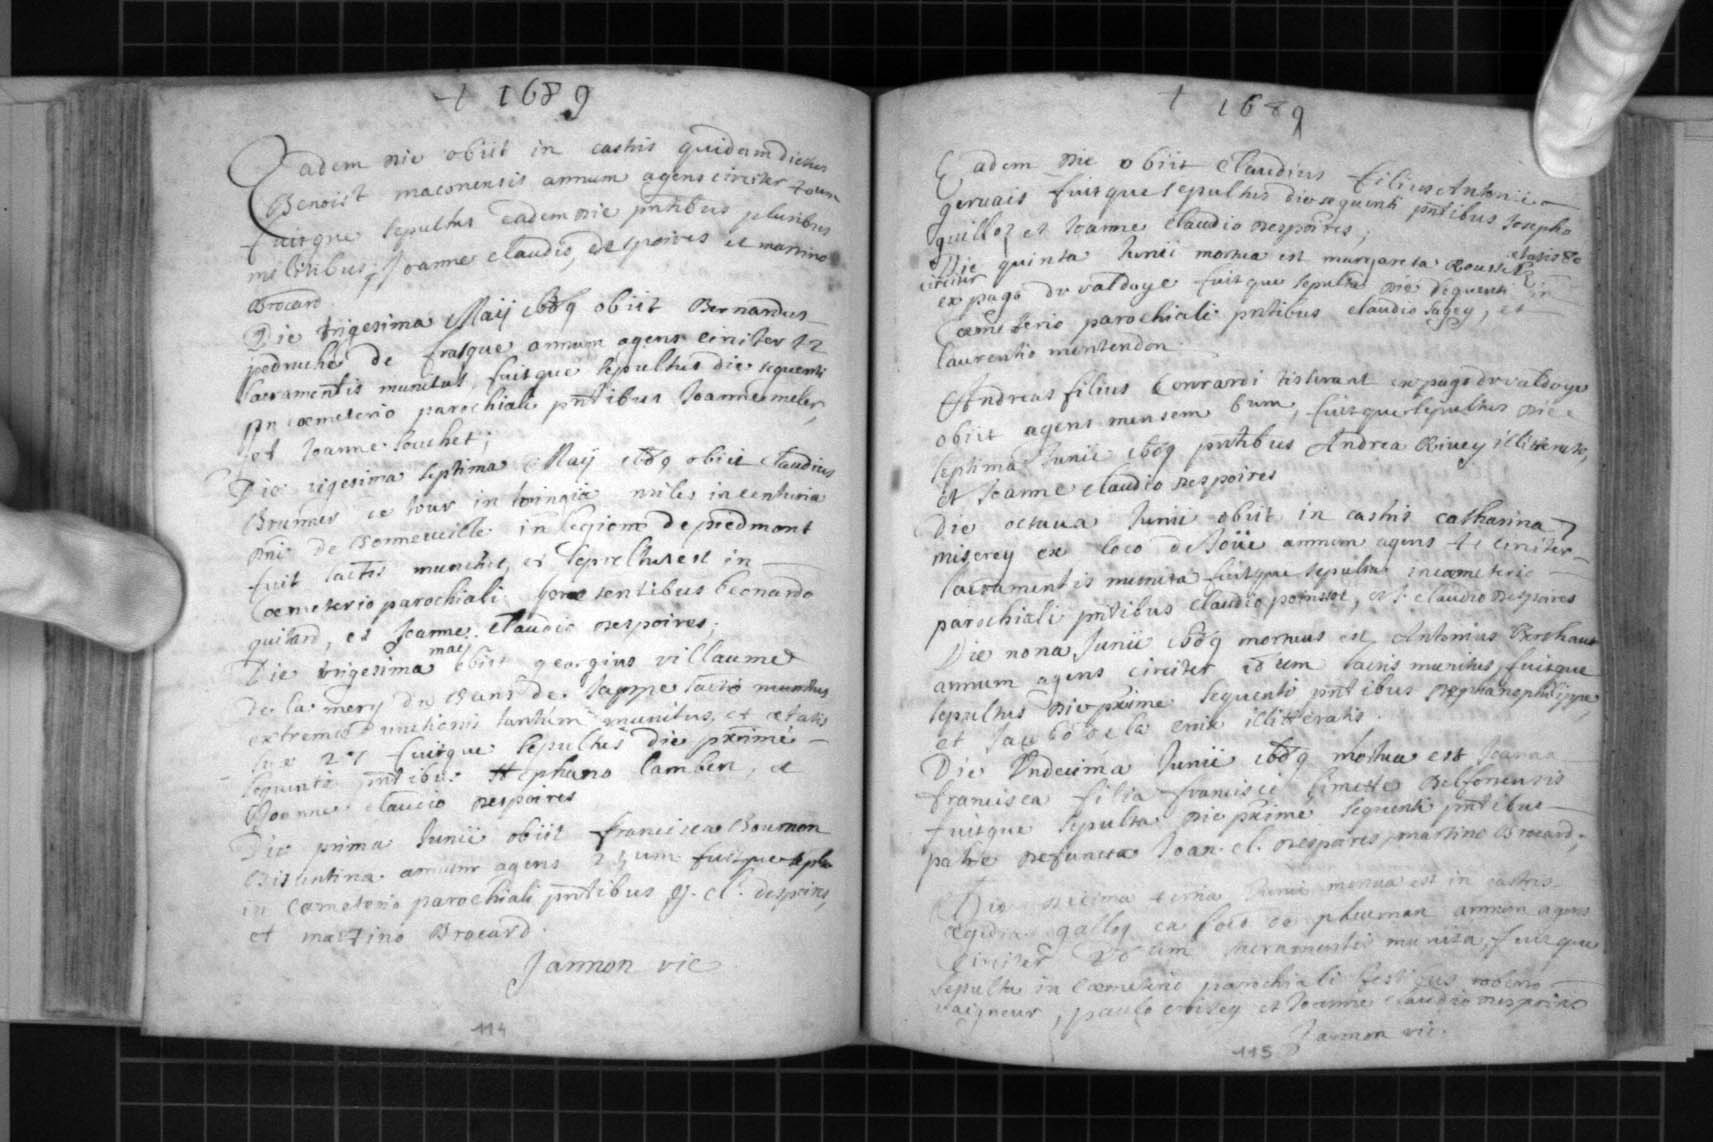 1689
Eadem die obiit in castris quidam dictus
Benoist maconensis annum agens circiter
fuitque sepultus eadem die pntibus pluribus
militibus, Joanne claudio despoires et martino
Brocard
Die trigesima Maij 1689 obiit Bernardus
de frasque annum agens circiter
sacramentis munitus, fuitque sepultus die sequenti
in coemeterio parochiali pntibus Joanne meler,
et Joanne souchet;
Die vigesima septima Maij 1689 obiit claudius
Brunner de tour in miles in centuria
dni de Bonneville in legione de piedmont
fuit sacris munitus, et sepultus est in
Coemeterio parochiali praesentibus leonardo
guitard, et Joanne claudio despoires;
Die trigesima maij obiit georgius villaume
de la mery du Bans de Jappe sacro
extremae unctionis tantùm munitus, et aetatis
suae 27 fuitque sepultus die primè
sequenti pntibus Stephano lamber, et
Joanne claudio despoires
Die prima Junii obiit francisca Boumon
Bisuntina annum agens 25um fuitque
in Coemeterio parochiali pntibus J. cl. despoires,
et martino Brocard.
Jannon vic
114
1689
Eadem die obiit claudius filius Antonii
gervais fuitque sepultus die sequenti pntibus Josepho
guilloz et Joanne claudio despoires;
Die quinta Junii mortua est margareta Rousse aetatis 80
circiter
ex pago du valdoye fuitque sepulta die sequenti in
Coemeterio parochiali pntibus claudio sagey, et
laurentio montendon.
Andreas filius Conrardi ex pago du valdoye
obiit agens mensem, fuitque sepultus die
septima Junii 1689 pntibus Andrea Rivey illitterato,
et Joanne claudio despoires
Die octava Junii obiit in castris catharina
miserey ex loco de annum agens circiter
sacramentis munita fuitque sepulta in coemeterio
parochiali pntibus claudio, et J. claudio despoires
Die nona Junii 1689 mortuus est Antonius
annum agens circiter sacris munitus, fuitque
sepultus die prime sequenti pntibus Stephano philippe,
et Jacobo de la illitteratis.
Die Undecima Junii 1689 mortua est Joanna
francisca filia francisci limette Belfortensis
fuitque sepulta die primè sequenti pntibus
patre defunctae Joan. cl. despoires, martino Brocard;
Die decima tertia Junii mortua est in castris
galloy ex loco de annum agens
circiter sacramentis munita, fuitque
sepulta in coemeterio parochiali testibus
vaigneur, paulo croisey et Joanne claudio despoires
Jannon vic.
115